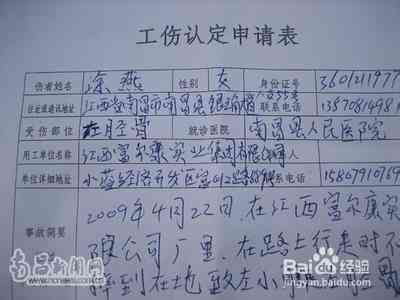 工伤认定申请表
伤者姓名 涂燕 性别 女 身份证号 3601211977
住址或通讯地址 江西省南昌市南昌县 联系电话 1387081498
受伤部位 左胫骨 就诊医院 南昌县人民医院
用工单位名称 江西富尔康实业集团有限公司 人
单位详细地址 小蓝经济开发区 联系电话 1586791076
2009年4月22日,在江西富尔康实
事故简要 限公司厂里,在路上行走时不
掉到在地 致左小 骨
南昌新闻网
Baidu百度经验
jingyan.baidu.com